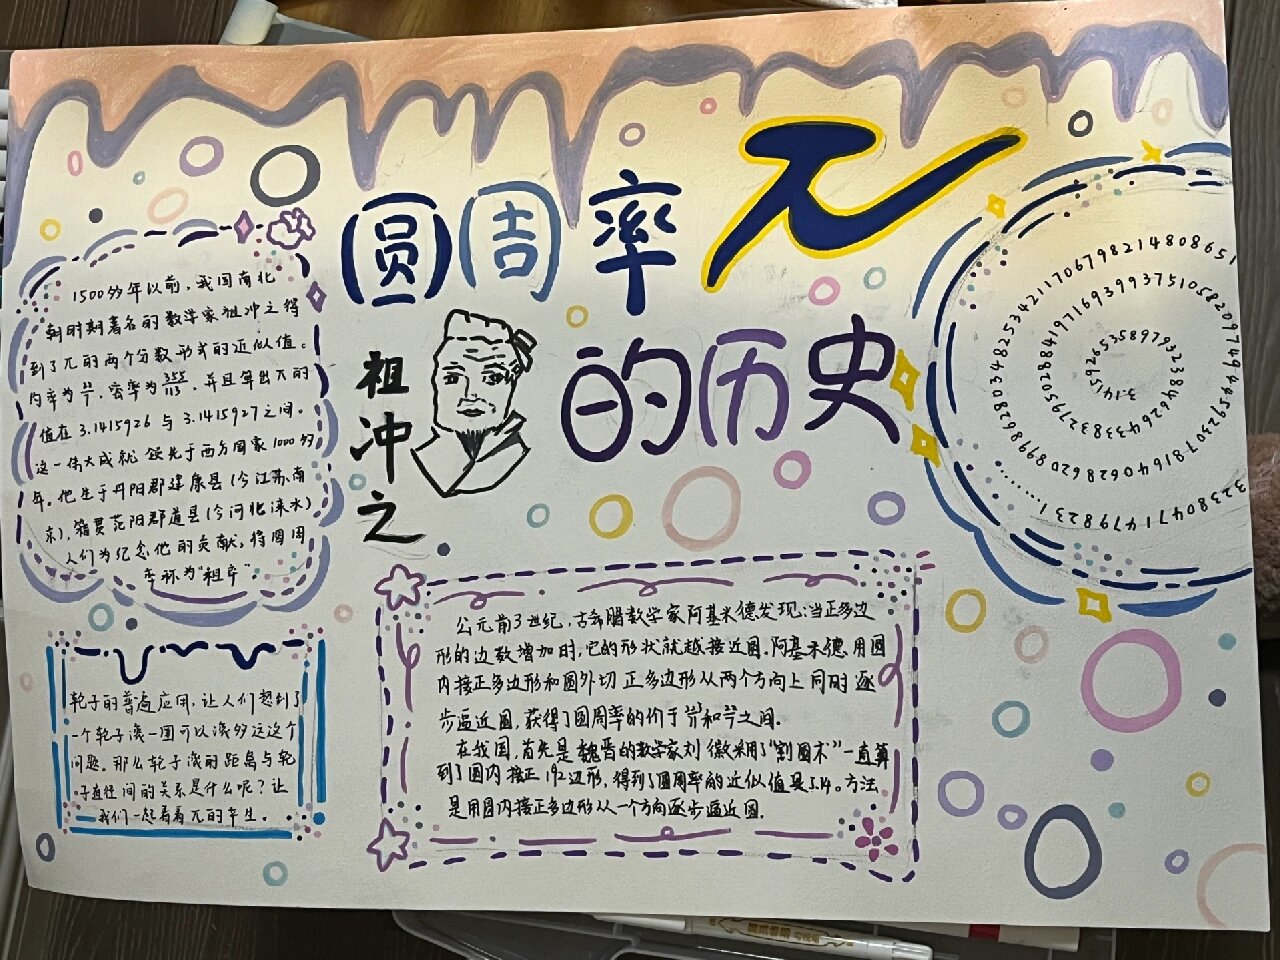 圆周率π
的历史
祖冲之
1500多年以前，我国南北
朝时期著名的数学家祖冲之得
到了π的两个分数形式的近似值。
约率为22/7，密率为355/113，并且算出π的
值在3.1415926与3.1415927之间。
这一伟大成就领先于西方国家1000多
年。他生于丹阳郡建康县(今江苏南
京)，籍贯范阳郡遒县(今河北涞水)
人们为纪念他的贡献，将圆周
率称为"祖率"。
轮子的普遍应用，让人们想到了
一个轮子滚一圈可以滚多远这个
问题。那么轮子滚的距离与轮
子直径间的关系是什么呢？让
我们一起看看π的产生。
公元前3世纪，古希腊数学家阿基米德发现：当正多边
形的边数增加时，它的形状就越接近圆。阿基米德用圆
内接正多边形和圆外切正多边形从两个方向上同时逐
步逼近圆，获得了圆周率的价于和之间.
在我国，首先是魏晋的数学家刘徽采用了"割圆术"一直算
到了圆内接正192边形，得到了圆周率的近似值是3.14。方法
是用圆内接正多边形从一个方向逐步逼近圆.
3.14159265358979323846264338327950288419716939937510582097494459230781640628620899862803482534211706798214808651
323804714798231........